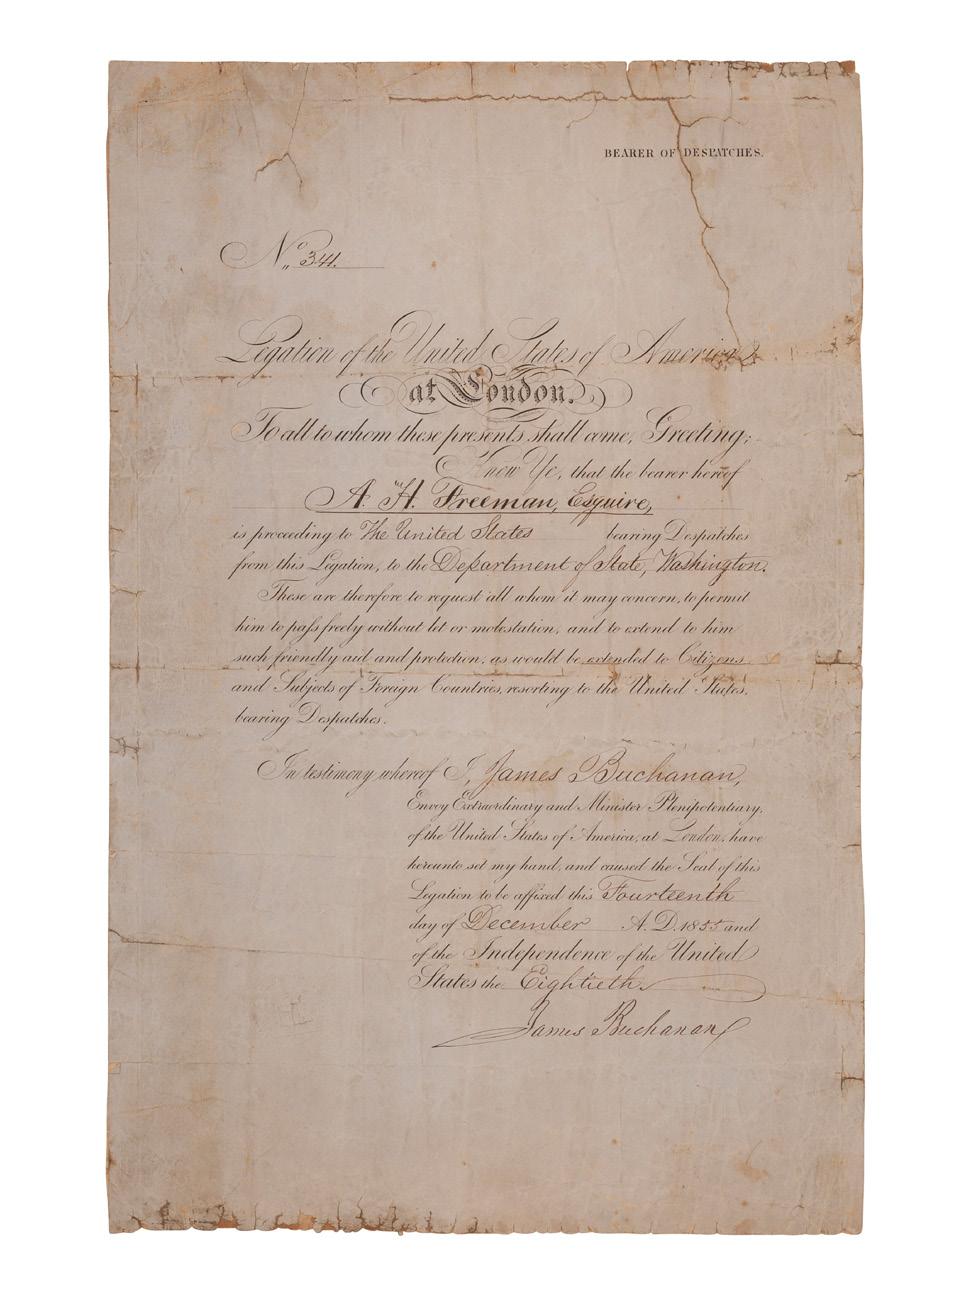 BEARER OF DESPATCHES.
No. 341.
Legation of the United States of America
at London.
To all to whom these presents shall come, Greeting;
Know Ye, that the bearer hereof
A. H. Freeman, Esquire,
is proceeding to The United States bearing Despatches
from this Legation, to the Department of State, Washington.
These are therefore to request all whom it may concern, to permit
him to pass freely without let or molestation, and to extend to him
such friendly aid and protection, as would be extended to Citizens
and Subjects of Foreign Countries, resorting to the United States,
bearing Despatches.
In testimony whereof I, James Buchanan,
Envoy Extraordinary and Minister Plenipotentiary,
of the United States of America, at London, have
hereunto set my hand, and caused the Seal of this
Legation to be affixed this Fourteenth
day of December A.D. 1855 and
of the Independence of the United
States the Eightieth.
James Buchanan